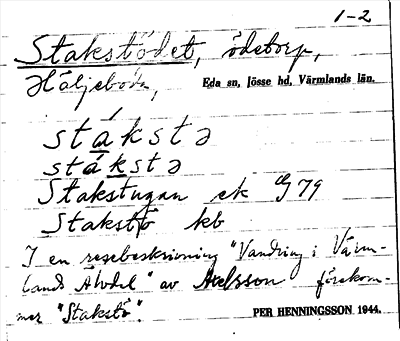 1-2
Stakstödet, ödetorp,
Häljeboda,
Eda sn, Jösse hd, Värmlands län.
stákstə
stákstə
Stakstugan ek G 79
Stakstö kb
I en resebeskrivning "Vandring i Värm-
lands Älvdal" av Axelsson förekom-
mer "Stakstö".
PER HENNINGSSON 1944.